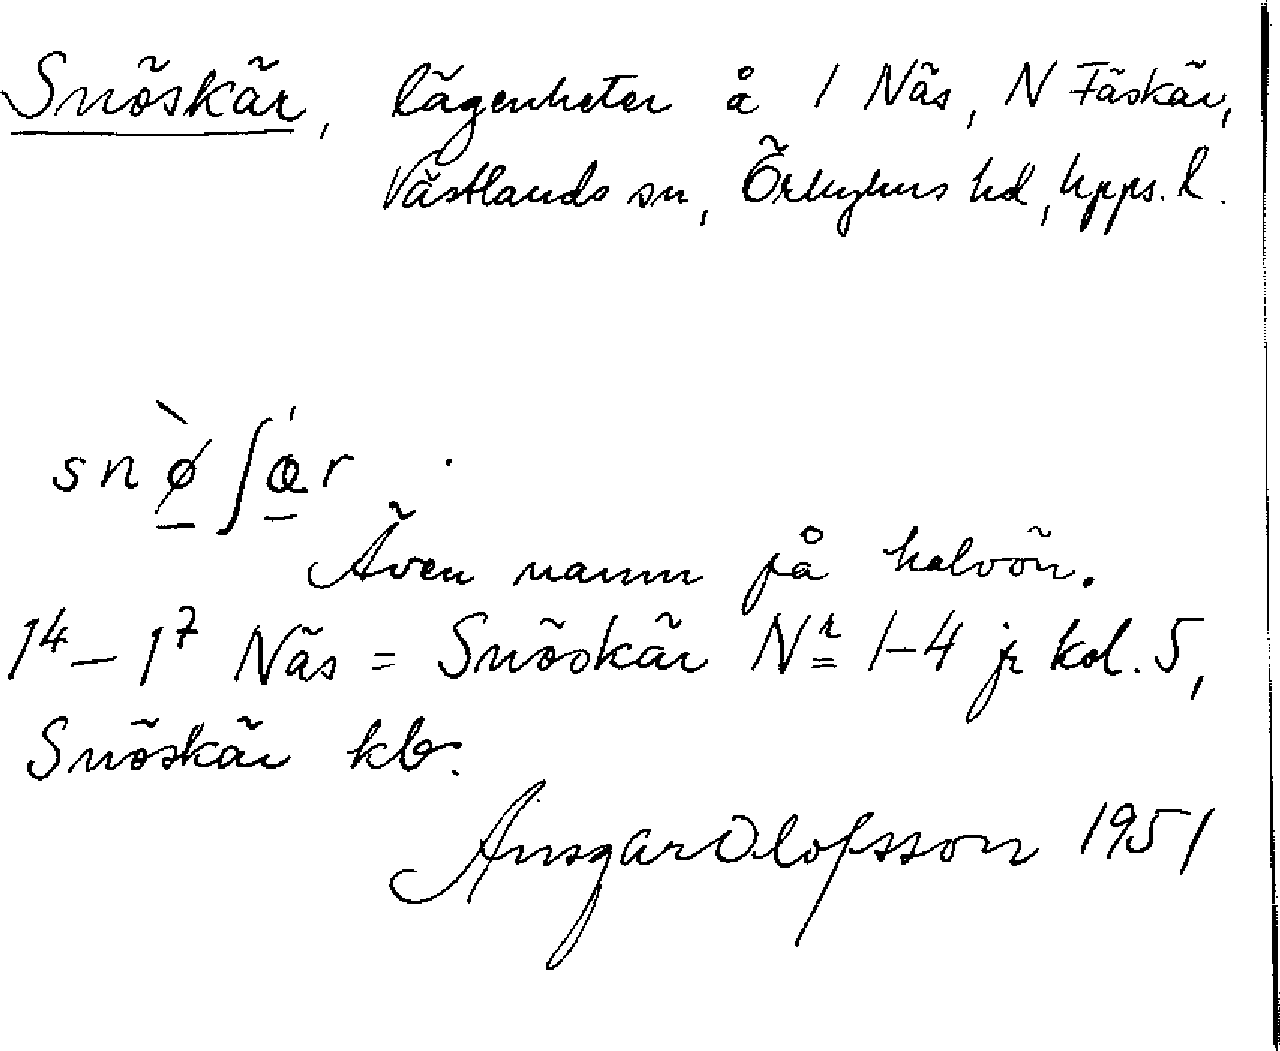 Snöskär, lägenheter å 1 Näs, N Fäskär,
Västlands sn, Örbyhus hd, Upps. l.
snø̀ʃæ̍r.
Även namn på halvön.
1⁴–1⁷ Näs = Snöskär Nr 1–4 jr kol. 5,
Snöskär kb.
Ansgar Olofsson 1951